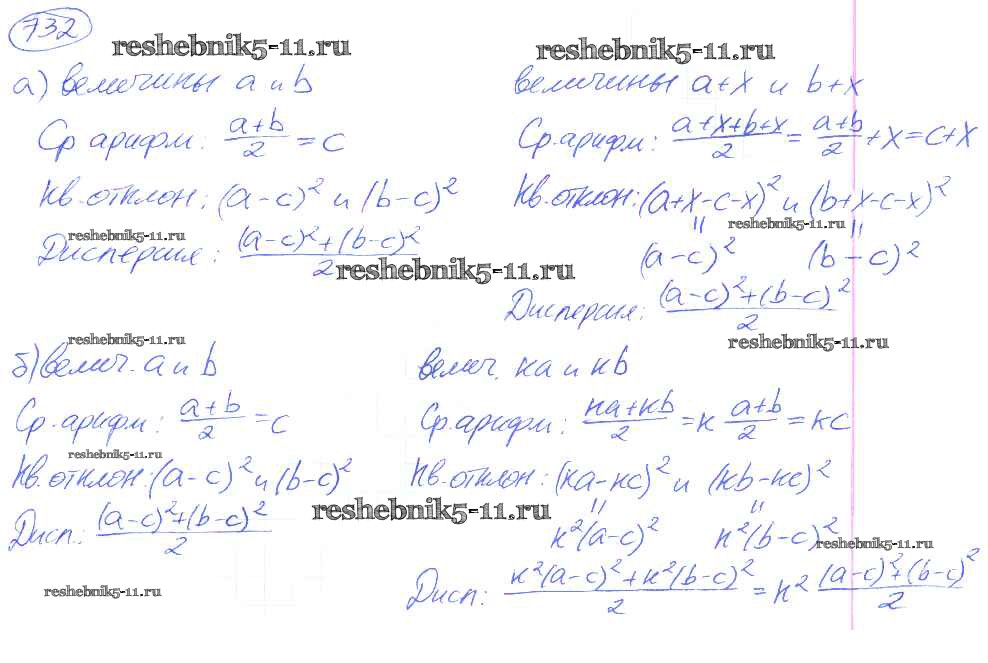 732
reshebnik5-11.ru
reshebnik5-11.ru
а) величины a и b
Ср арифм: (a+b)/2 = c
Кв. отклон: (a-c)² и (b-c)²
reshebnik5-11.ru
Дисперсия: ((a-c)²+(b-c)²)/2
reshebnik5-11.ru
величины a+x и b+x
Ср. арифм: (a+x+b+x)/2 = (a+b)/2 + x = c+x
Кв. отклон: (a+x-c-x)² и (b+x-c-x)²
reshebnik5-11.ru
=
=
(a-c)² (b-c)²
Дисперсия: ((a-c)²+(b-c)²)/2
reshebnik5-11.ru
reshebnik5-11.ru
б) велич. a и b
Ср. арифм: (a+b)/2 = c
reshebnik5-11.ru
Кв. отклон: (a-c)² и (b-c)²
Дисп.: ((a-c)²+(b-c)²)/2
reshebnik5-11.ru
reshebnik5-11.ru
велич. ка и кb
Ср. арифм: (ка+кb)/2 = к (a+b)/2 = кc
Кв. отклон: (ка-кc)² и (кb-кc)²
=
=
к²(a-c)² к²(b-c)²
reshebnik5-11.ru
Дисп: (к²(a-c)²+к²(b-c)²)/2 = к² ((a-c)²+(b-c)²)/2